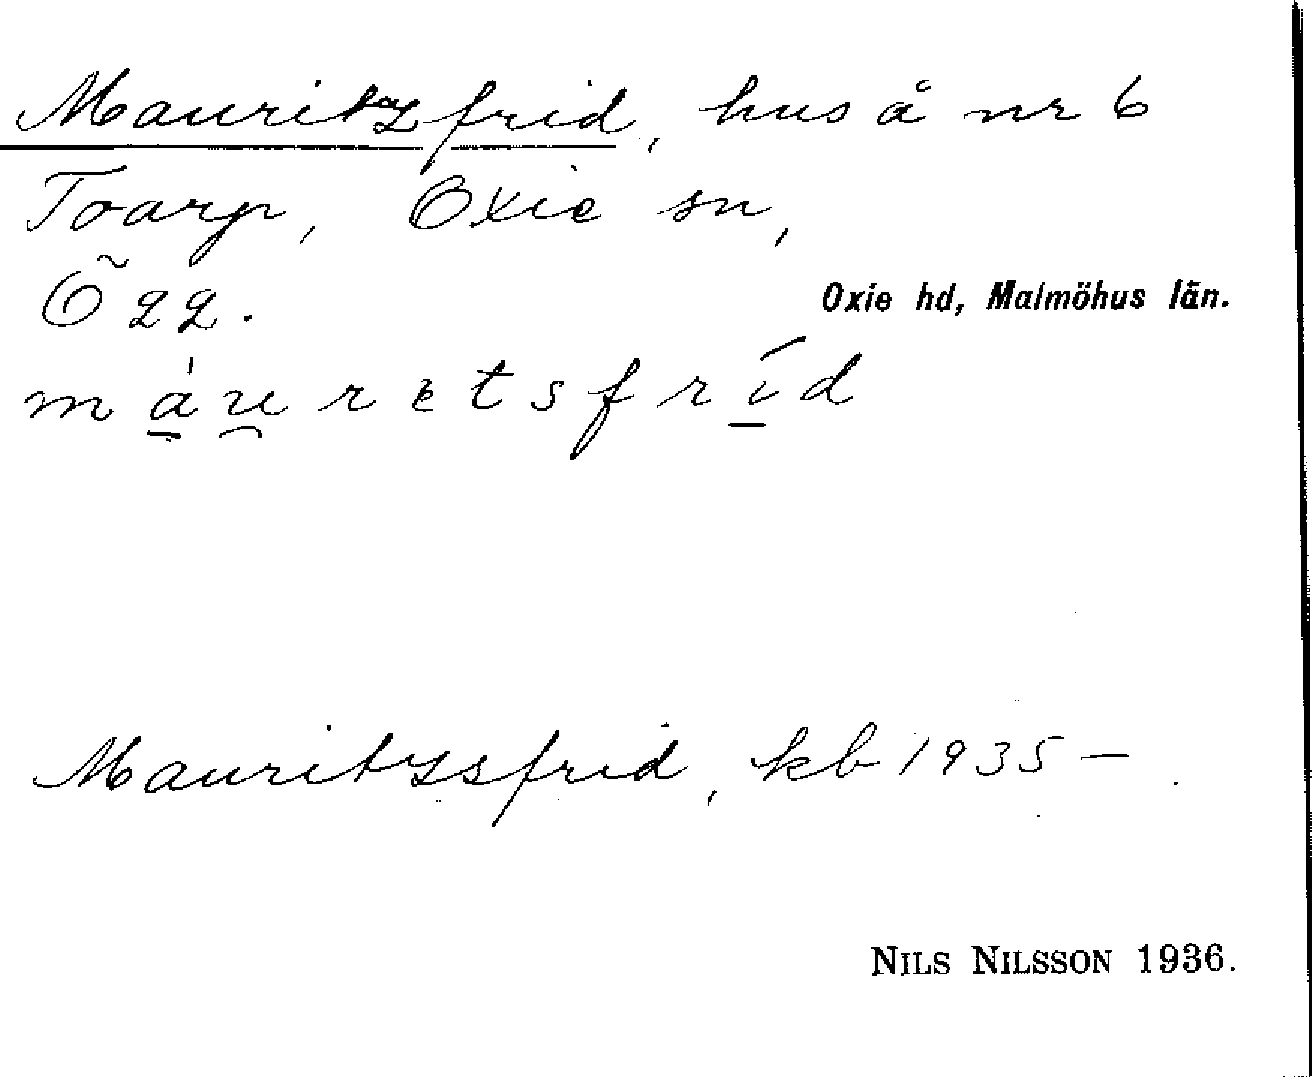 Mauritzfrid, hus å nr 6
Toarp, Oxie sn,
Oxie hd, Malmöhus län.
mau̯retsfrid
Mauritzsfrid, kb 1935 –
NILS NILSSON 1936.